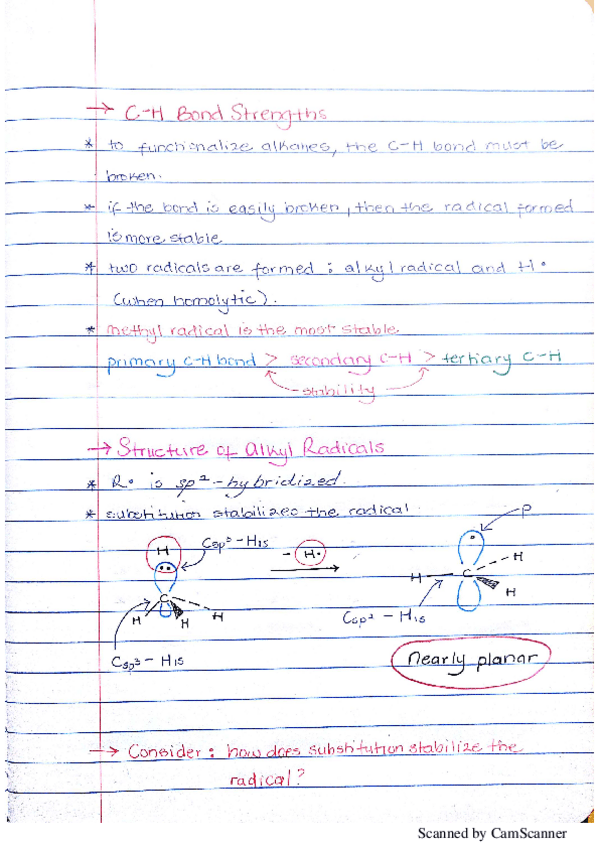 → C-H Bond Strengths
* to functionalize alkanes, the C-H bond must be
broken.
* if the bond is easily broken, then the radical formed
is more stable
* two radicals are formed : alkyl radical and H•
(when homolytic).
* methyl radical is the most stable.
primary C-H bond > secondary C-H > tertiary C-H
stability
→ Structure of Alkyl Radicals
* R• is sp²-hybridized.
* substitution stabilizes the radical.
H Csp³-H1s - H• P
C H H H
H C H H
Csp² - H1s
Csp³ - H1s
nearly planar
→ Consider : how does substitution stabilize the
radical?
Scanned by CamScanner